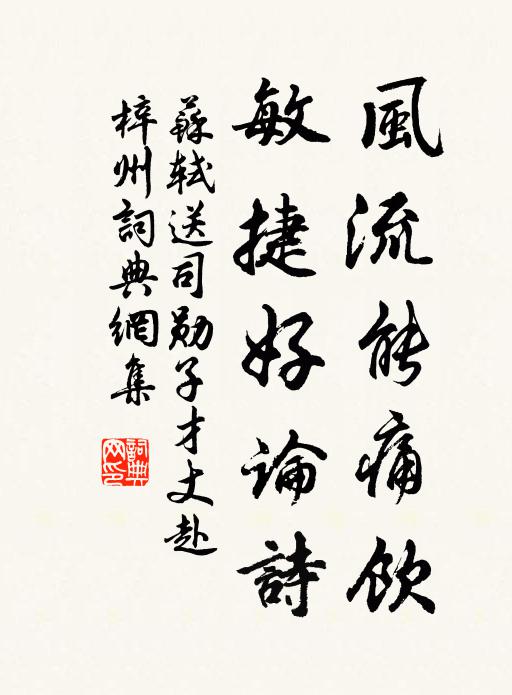 風流能痛飲
敏捷好論詩
蘇軾送司勛子才丈赴
梓州詞典網集
詞典網印